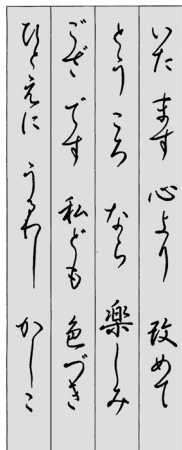 いたます 心より 改めて
とうころ なら 楽しみ
ござです 私ども 色づき
ひとえに うるわし かしこ